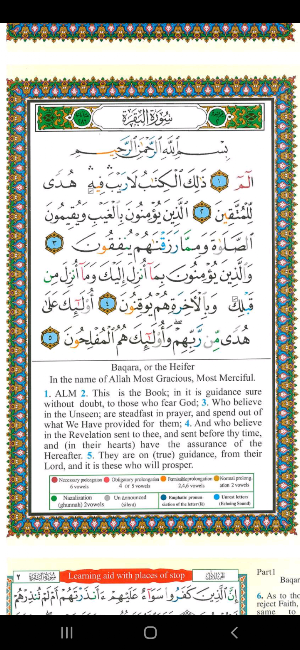 سُورَةُ البَقَرَةِ
بِسْمِ ٱللَّهِ ٱلرَّحْمَٰنِ ٱلرَّحِيمِ
الٓمٓ ١ ذَٰلِكَ ٱلْكِتَٰبُ لَا رَيْبَ ۛ فِيهِ ۛ هُدًى
لِّلْمُتَّقِينَ ٢ ٱلَّذِينَ يُؤْمِنُونَ بِٱلْغَيْبِ وَيُقِيمُونَ
ٱلصَّلَوٰةَ وَمِمَّا رَزَقْنَٰهُمْ يُنفِقُونَ ٣
وَٱلَّذِينَ يُؤْمِنُونَ بِمَآ أُنزِلَ إِلَيْكَ وَمَآ أُنزِلَ مِن
قَبْلِكَ وَبِٱلْءَاخِرَةِ هُمْ يُوقِنُونَ ٤ أُو۟لَٰٓئِكَ عَلَىٰ
هُدًى مِّن رَّبِّهِمْ ۖ وَأُو۟لَٰٓئِكَ هُمُ ٱلْمُفْلِحُونَ ٥
Baqara, or the Heifer
In the name of Allah Most Gracious, Most Merciful.
1. ALM 2. This is the Book; in it is guidance sure
without doubt, to those who fear God; 3. Who believe
in the Unseen; are steadfast in prayer, and spend out of
what We Have provided for them; 4. And who believe
in the Revelation sent to thee, and sent before thy time,
and (in their hearts) have the assurance of the
Hereafter. 5. They are on (true) guidance, from their
Lord, and it is these who will prosper.
Necessary prolongation 6 vowels
Obligatory prolongation 4 or 5 vowels
Permissible prolongation 2,4,6 vowels
Normal prolongation 2 vowels
Nazalization (ghunnah) 2vowels
Un announced (silent)
Emphatic pronunciation of the letter (R)
Unrest letters (Echoing Sound)
٢ سُورَةُ البَقَرَةِ
Learning aid with places of stop
Part1
Baqar
إِنَّ ٱلَّذِينَ كَفَرُوا۟ سَوَآءٌ عَلَيْهِمْ ءَأَنذَرْتَهُمْ أَمْ لَمْ تُنذِرْهُمْ
6. As to tho
reject Faith,
same to